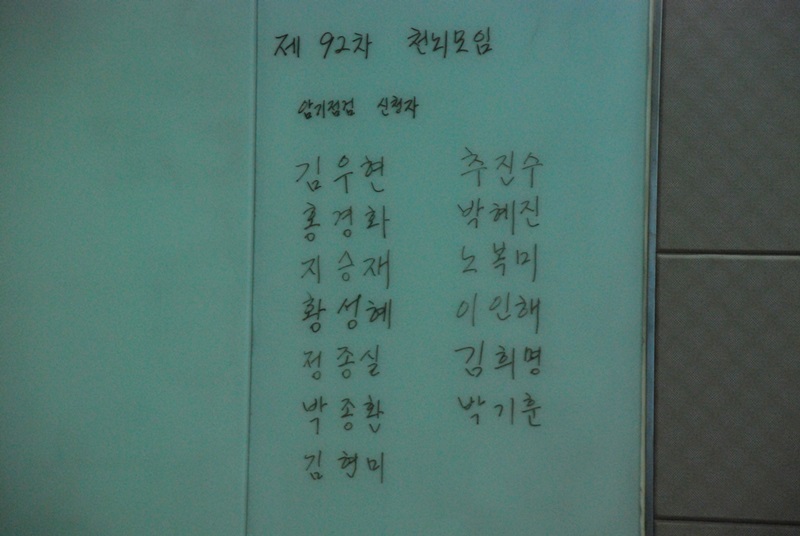 제 92차 천뇌모임
암기점검 신청자
김우현 추진수
홍경화 박혜진
지승재 노복미
황성혜 이인해
정종실 김희명
박종환 박기훈
김현미